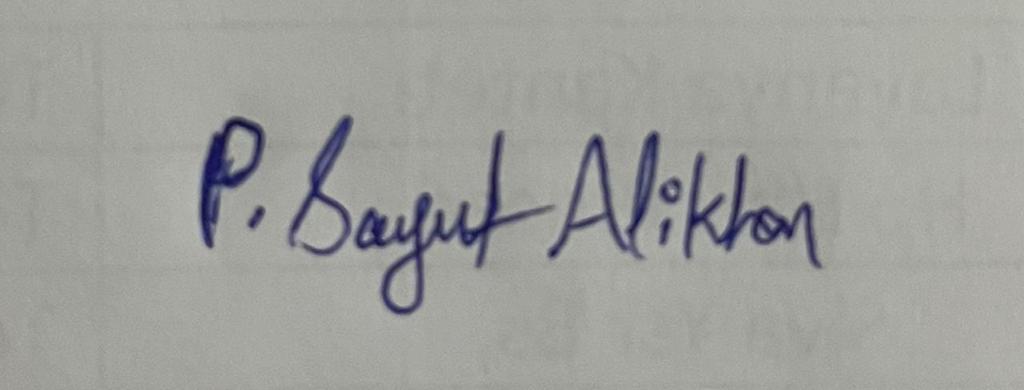 P. Sayut Alikhan